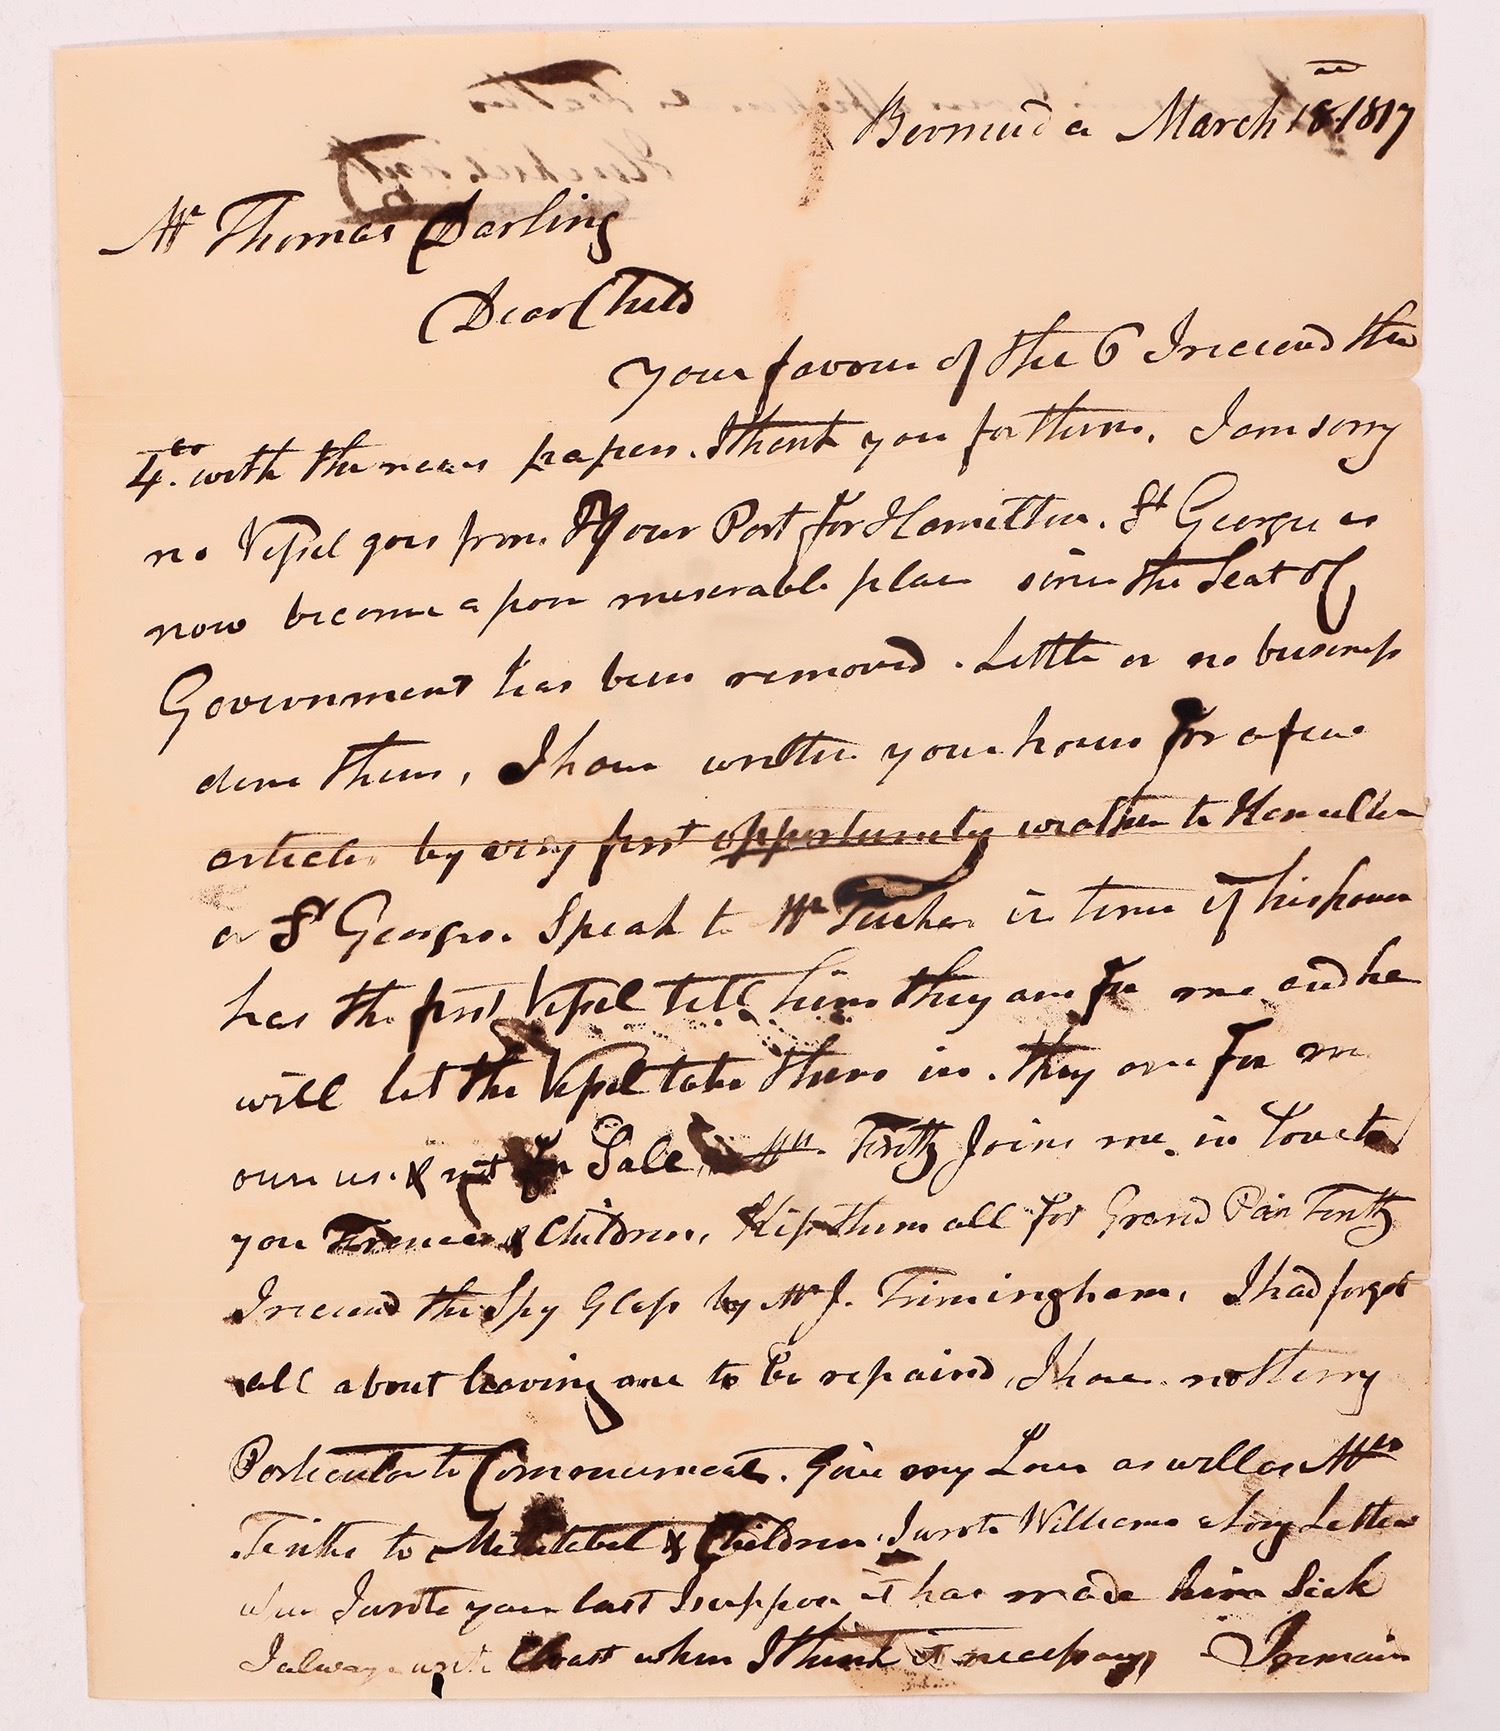 Bermuda March 18. 1817
Mr Thomas Darling
Dear Child
Your favour of the 6 I receivd the
4. with the news papers. I thank you for them. I am sorry
no Vessel goes from Your Port for Hamilton. St Georges is
now become a poor miserable place since the Seat of
Government has been removed. Little or no business
done there, I have written your house for a few
articles by very first opportunity wrather to Hamilton
or St Georges. Speak to Mr Tucker in time if his house
has the first Vessel tell him they are for me and he
will let the Vessel take them in. they are for my
own use & not for Sale. Mrs. Tentz Joins me in Love to
you & Children, Kiss them all for Grand Tentz
I receivd the Spy Glass by Mr J. Trimingham. I had forgot
all about leaving one to be repaird, I have not
Particular to Communicate. Give my Love as well as Mrs
to Mehitebel & Children. I wrote William a long Letter
when I wrote your last I suppose it has made him Sick
I always write when I think it necessary, I remain